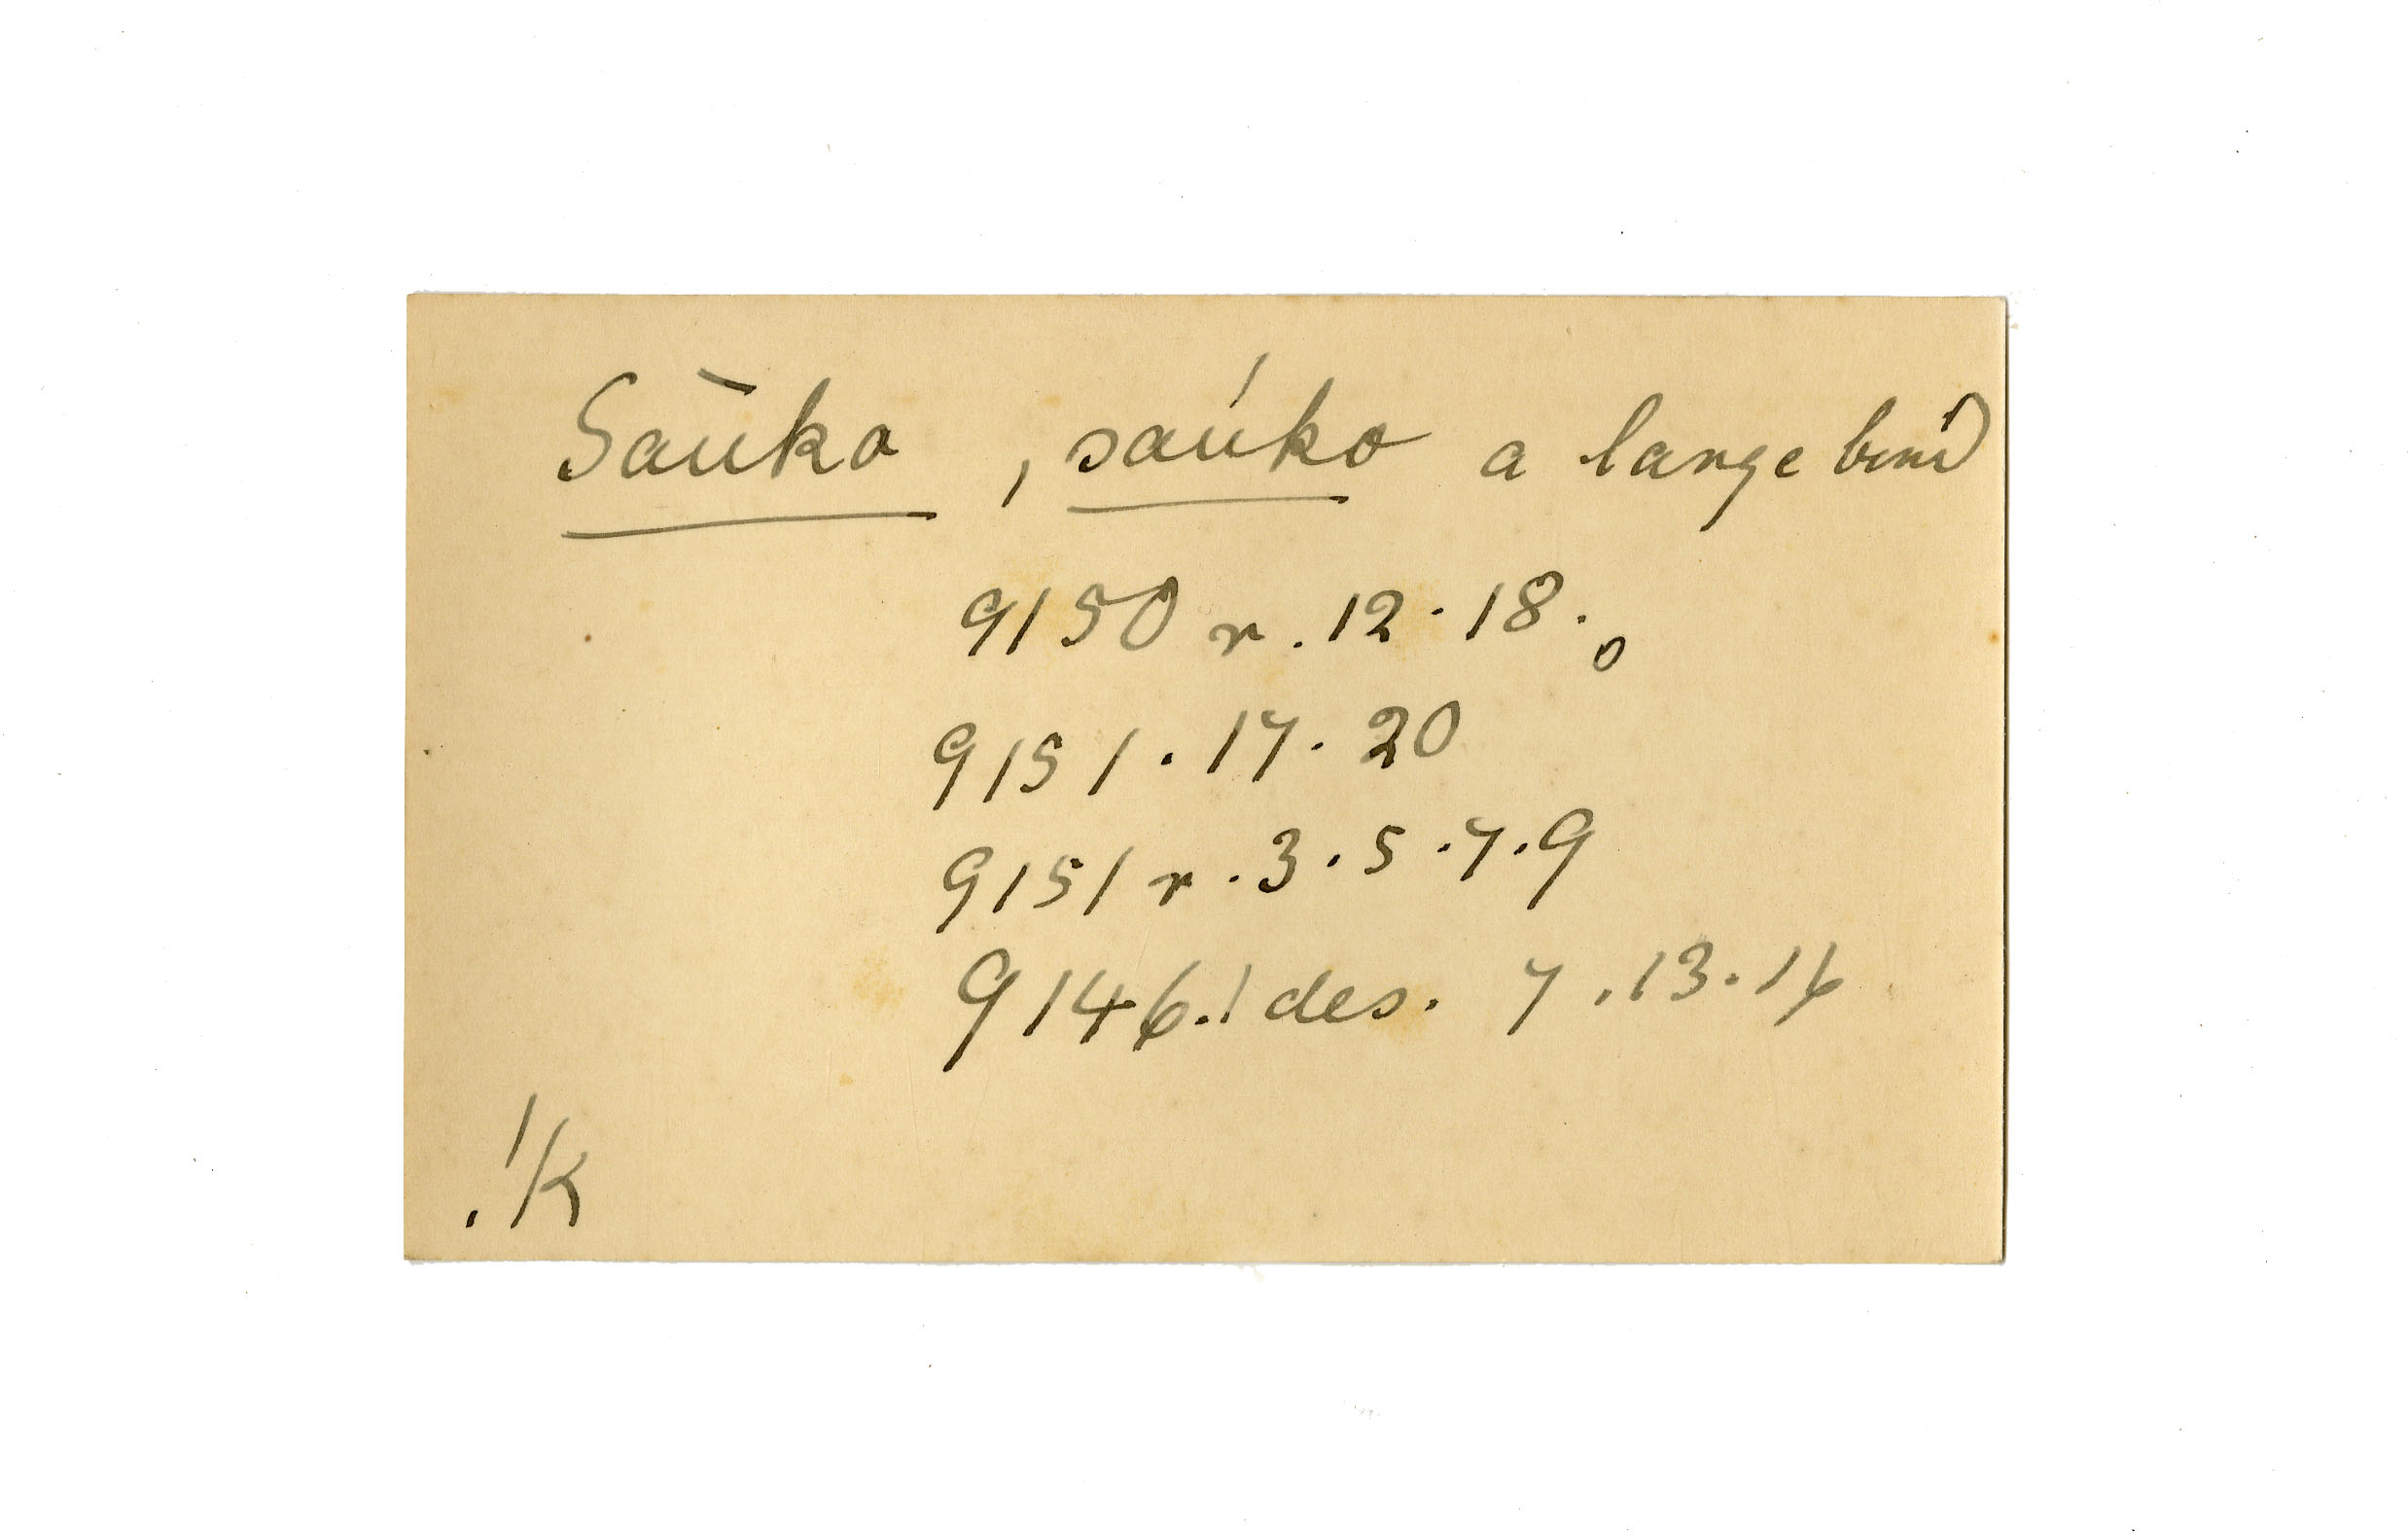 Saūko , saúko a large bird
9150 r . 12 . 18 . o
9151 . 17 . 20
9151 r . 3 . 5 . 7 . 9
9146.! des. 7 . 13 . 16
.!K